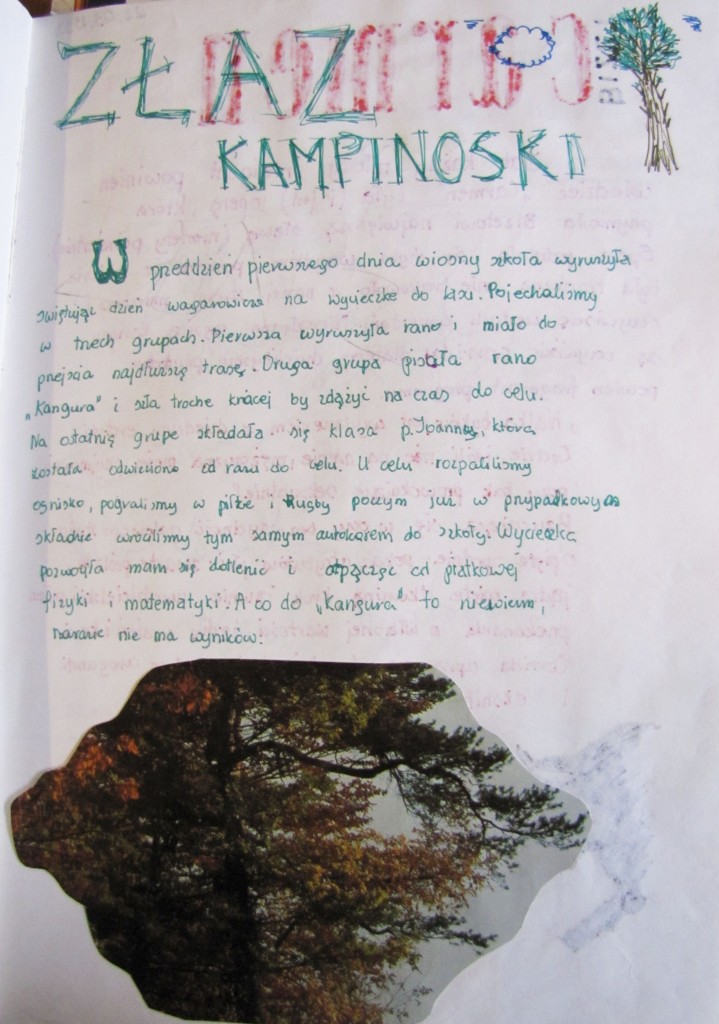 ZŁAZ
KAMPINOSKI
W przeddzień pierwszego dnia wiosny szkoła wyruszyła
świętując dzień wagarowicza na wycieczkę do lasu. Pojechaliśmy
w trzech grupach. Pierwsza wyruszyła rano i miała do
przejścia najdłuższą trasę. Druga grupa pisała rano
„Kangura" i szła troche krócej by zdążyć na czas do celu.
Na ostatnią grupe składała się klasa p. Joanny, która
została odwieziona od razu do celu. U celu rozpaliliśmy
ognisko, pograliśmy w piłke i Rugby poczym już w przypadkowym
składzie wróciliśmy tym samym autokarem do szkoły. Wycieczka
pozwoliła nam się dotlenić i odpocząć od piątkowej
fizyki i matematyki. A co do „Kangura" to niewiem,
narazie nie ma wyników.